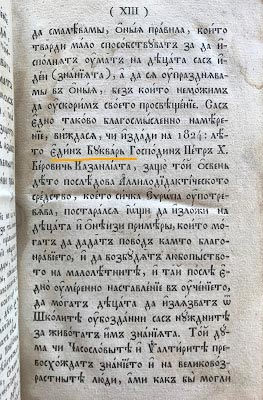 ( XIII )
да смалѣвамы, ѻ҆́ныѧ пра́вила, кои́то
тва́рди ма́ло способствꙋ́ватъ за да и҆-
спо́лнатъ оу҆ма́тъ на дѣца́та съсъ и҆-
де́и (зна́нїѧта), а да сѧ оу҆празднѧ́-
вамы въ ѻ҆́ныѧ, безъ кои́то невозмо́жимъ
да оу҆ско́римъ сво́ето просвѣще́нїе. Съсъ
є҆дно̀ такова̀ благомы́сленно намѣре́-
нїе, ви́ждасѧ, чи и҆зда́ди на 1824: лѣ́-
то Є҆ди́нъ Бꙋква́рь Господи́нъ Пе́тръ Х.
Бе́ровичь Казанлі́ата, за́що то́й ѻ҆́свенъ
дѣ́то послѣ́дова Аллилодїдакті́ческото
сре́дство, кое́то си́чка Еѵрѡ́па оу҆потре-
бѧ́ва, постара́лсѧ и҆́ощи да и҆зло́жи на
дѣца́та и҆ ѻ҆нѣ́изи примѣ́ры, кои́то мо́-
гатъ да да́датъ по́водъ ка́мто благо-
нра́вїето, и҆ да возбꙋ́дятъ любопы́тство-
то на малолѣ́тнитѣ, и҆ таи́ по́слѣ є҆-
дно̀ оу҆мѣре́нно наставле́нїе въ оу҆че́нїето,
да мо́гатъ дѣца́та да и҆злѧ́зватъ ѿ
Шко́литѣ оу҆богоа́зднни съсъ нꙋ́жднитѣ
за живо́татъ и҆мъ зна́нїѧта. То́й дꙋ́-
ма чи Часосло́вытѣ и҆ Ѱалти́ритѣ пре-
восхо́ждатъ зна́нїето и҆ на великово́з-
растнытѣ лю́ди, а҆ми́ ка́къ бы могли́